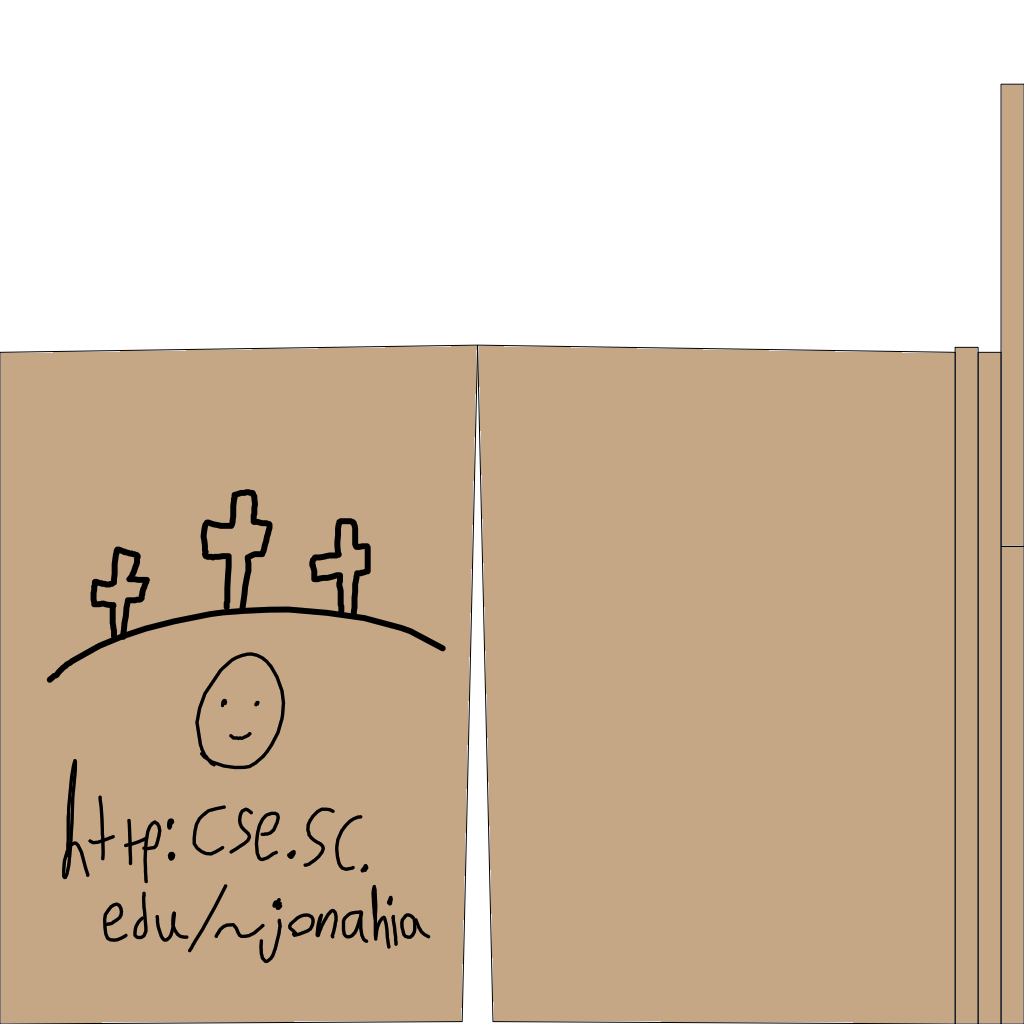 http:cse.sc.
edu/~jonahia